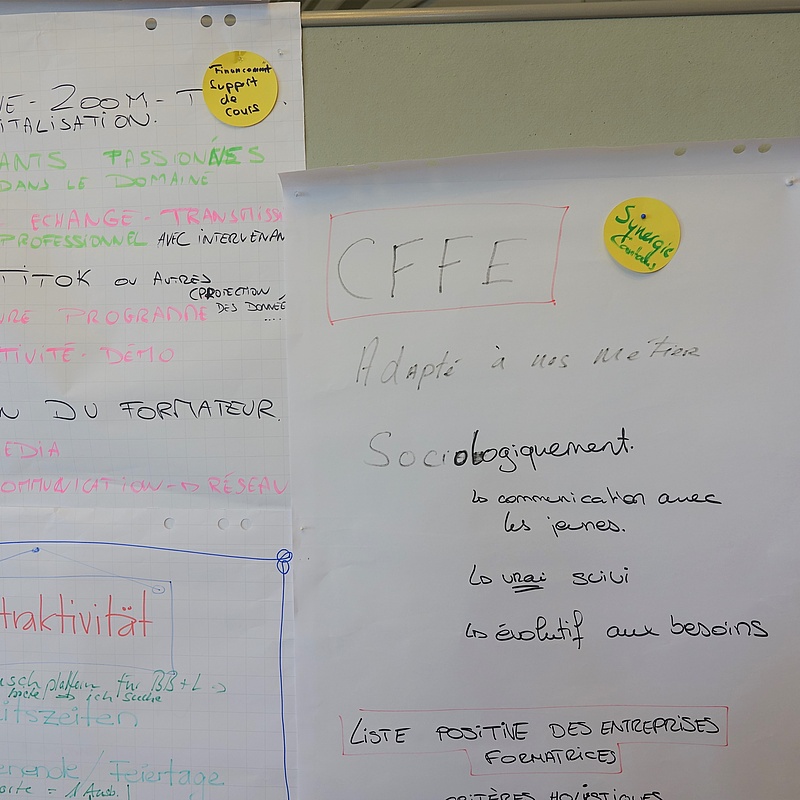 Financement
Support
de
cours
- ZOOM -
ITALISATION.
ANTS PASSIONÉES
DANS LE DOMAINE
ECHANGE - TRANSMISSI
PROFESSIONNEL AVEC INTERVENAN
TITOK OU AUTRES
(PROTECTION
DES DONNÉE
....
URE PROGRAMME
TIVITÉ - DÉMO
N DU FORMATEUR.
EDIA
OMMUNICATION → RÉSEAU
traktivität
usch platform für BB+L →
biete → ich suche
itszeiten
enende / Feiertage
Synergie
CFFE
Adapté à nos métier
Sociologiquement.
↳ communication avec
les jeunes.
↳ vrai suivi
↳ évolutif aux besoins
LISTE POSITIVE DES ENTREPRISES
FORMATRICES
CRITÈRES HOLISTIQUES